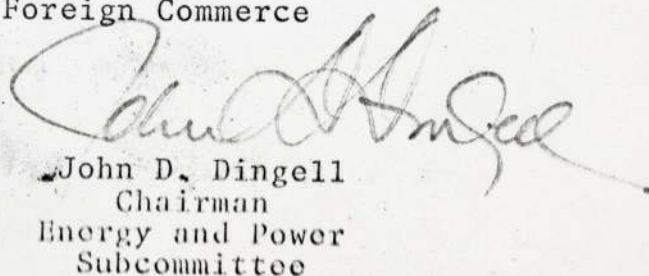 Foreign Commerce
John D. Dingell
John D. Dingell
Chairman
Energy and Power
Subcommittee